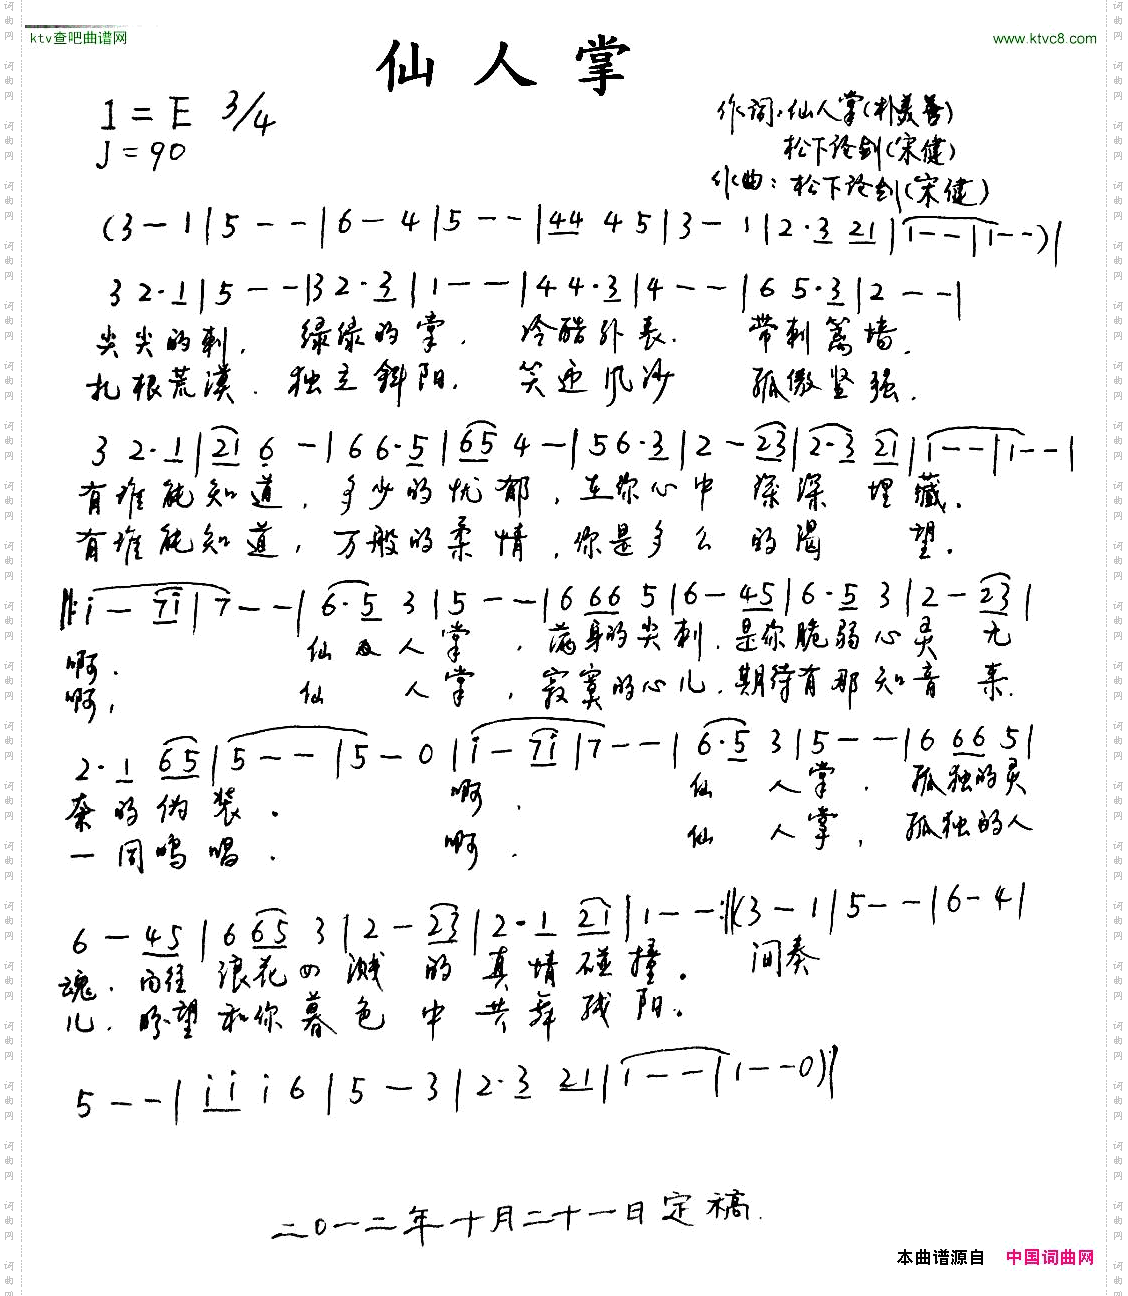 ktv查吧曲谱网
www.ktvc8.com
仙人掌
1=E 3/4
J=90
作词:仙人掌(朴美善)
松下论剑(宋健)
作曲:松下论剑(宋健)
(3 – 1 | 5 – – | 6 – 4 | 5 – – | 44 4 5 | 3 – 1 | 2·3 21 | 1 – – | 1 – – ) |
3 2·1 | 5 – – | 3 2·3 | 1 – – | 4 4·3 | 4 – – | 6 5·3 | 2 – – |
尖尖的刺, 绿绿的掌, 冷酷外表. 带刺篱墙.
扎根荒漠. 独立斜阳. 笑迎风沙 孤傲坚强.
3 2·1 | 21 6 – | 6 6·5 | 65 4 – | 5 6·3 | 2 – 23 | 2·3 21 | 1 – – | 1 – – |
有谁能知道, 多少的忧郁, 在你心中 深深 埋藏.
有谁能知道, 万般的柔情, 你是多么 的渴 望.
‖: i – 7i | 7 – – | 6·5 3 | 5 – – | 6 66 5 | 6 – 45 | 6·5 3 | 2 – 23 |
啊. 仙 人掌, 满身的尖刺. 是你脆弱心灵 无
啊, 仙 人掌, 寂寞的心儿. 期待有那知音 来.
2·1 65 | 5 – – | 5 – 0 | i – 7i | 7 – – | 6·5 3 | 5 – – | 6 66 5 |
奈的伪装. 啊. 仙 人掌. 孤独的灵
一同鸣唱. 啊. 仙 人掌, 孤独的人
6 – 45 | 6 65 3 | 2 – 23 | 2·1 21 | 1 – – :‖ (3 – 1 | 5 – – | 6 – 4 |
魂. 向往 浪花四溅 的真情碰撞. 间奏
儿. 盼望和你暮色中共舞残阳.
5 – – | i i i 6 | 5 – 3 | 2·3 21 | 1 – – | 1 – – 0) |
二〇一二年十月二十一日定稿.
本曲谱源自 中国词曲网
词曲网